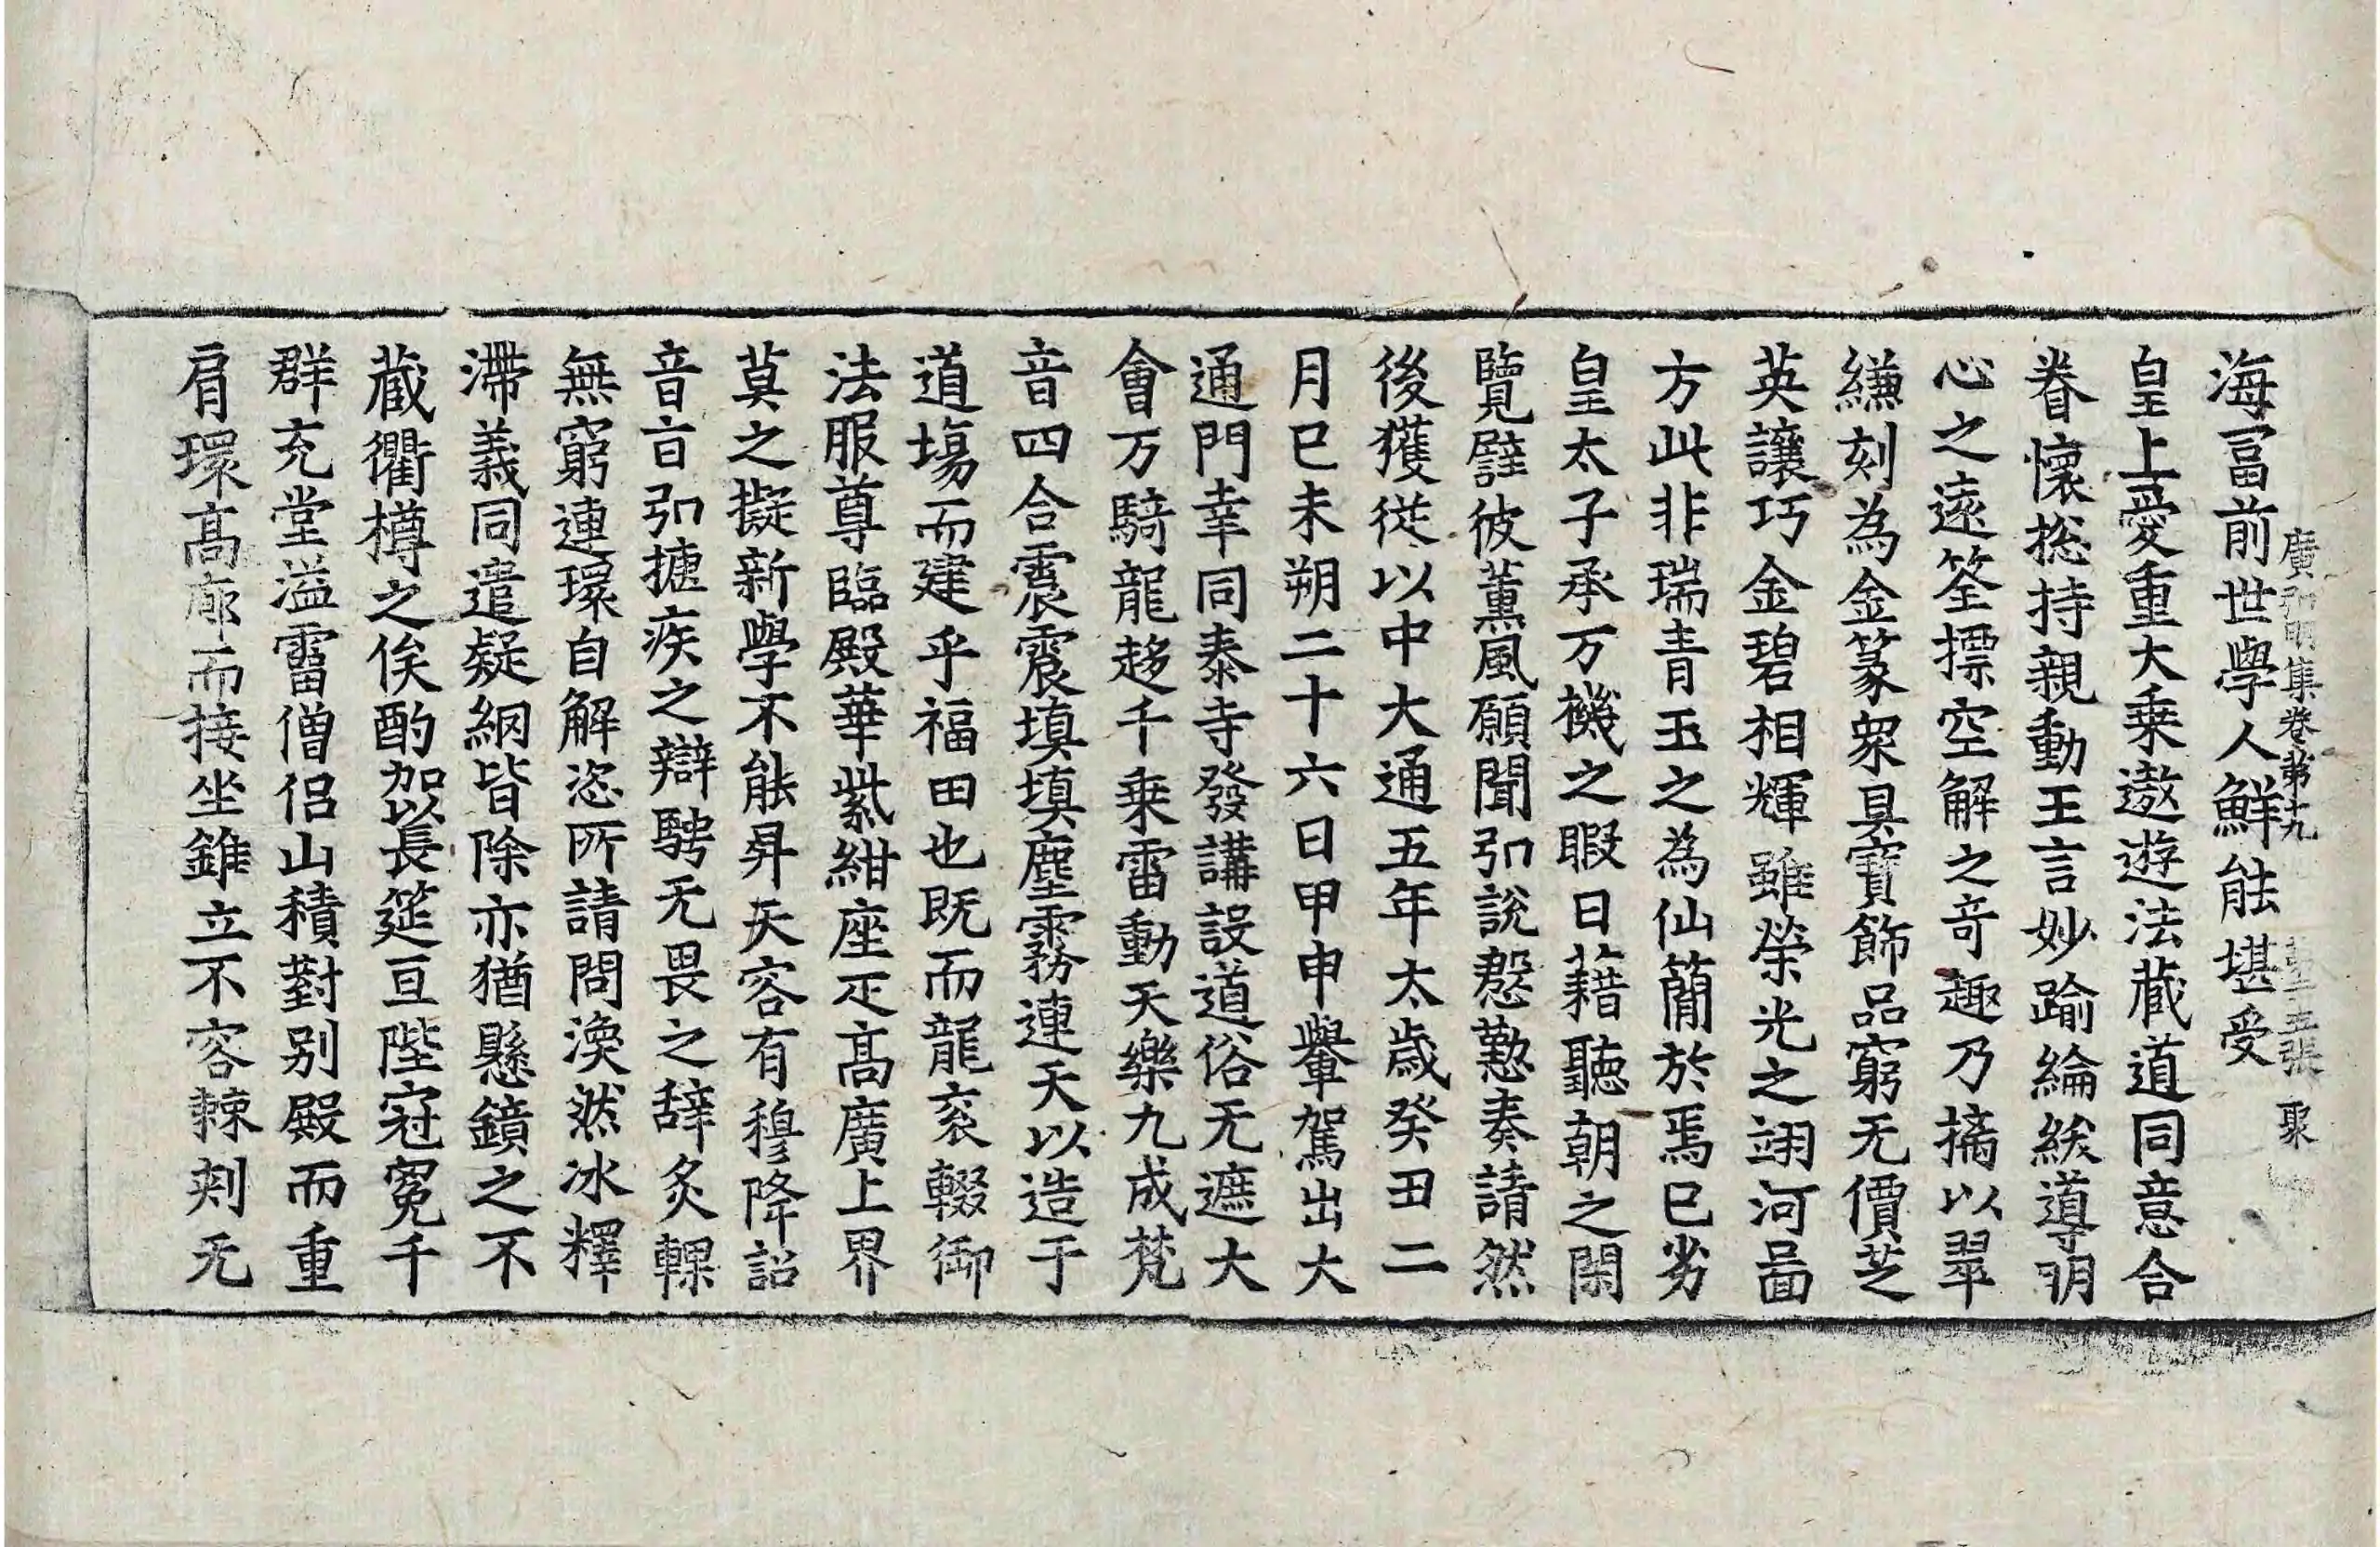 海冨前世學人鮮能堪受
廣弘明集卷第十九 第三張 聚
皇上愛重大乗遨遊法蔵道同意合
眷懷揔持親動王言妙踰綸綍導明
心之遠筌摽空解之竒趣乃摛以翠
縑刻為金篆衆具寶飾品窮无價芝
英讓巧金碧相輝雖榮光之翊河啚
方此非瑞青玉之為仙簡於焉巳劣
皇太子承万機之暇日藉聽朝之閑
覽譬彼薫風願聞弘說慇懃奏請然
後獲從以中大通五年太歳癸丑二
月巳未朔二十六日甲申轝駕出大
通門幸同泰寺發講設道俗无遮大
會万騎龍趍千乗雷動天樂九成梵
音四合震震填填塵霧連天以造于
道塲而建乎福田也既而龍衮輟御
法服尊臨殿華紫紺座疋髙廣上界
莫之擬新學不能昇天容有穆降詔
音㫖弘摙疾之辯騁无畏之辝炙輠
無窮連環自解恣所請問渙然冰釋
滯義同遣疑網皆除亦猶懸鏡之不
蔵衢樽之俟酌加以長筵亘陛冠冕千
群充堂溢霤僧侣山積對别殿而重
肩環髙廊而接坐錐立不容棘刾无